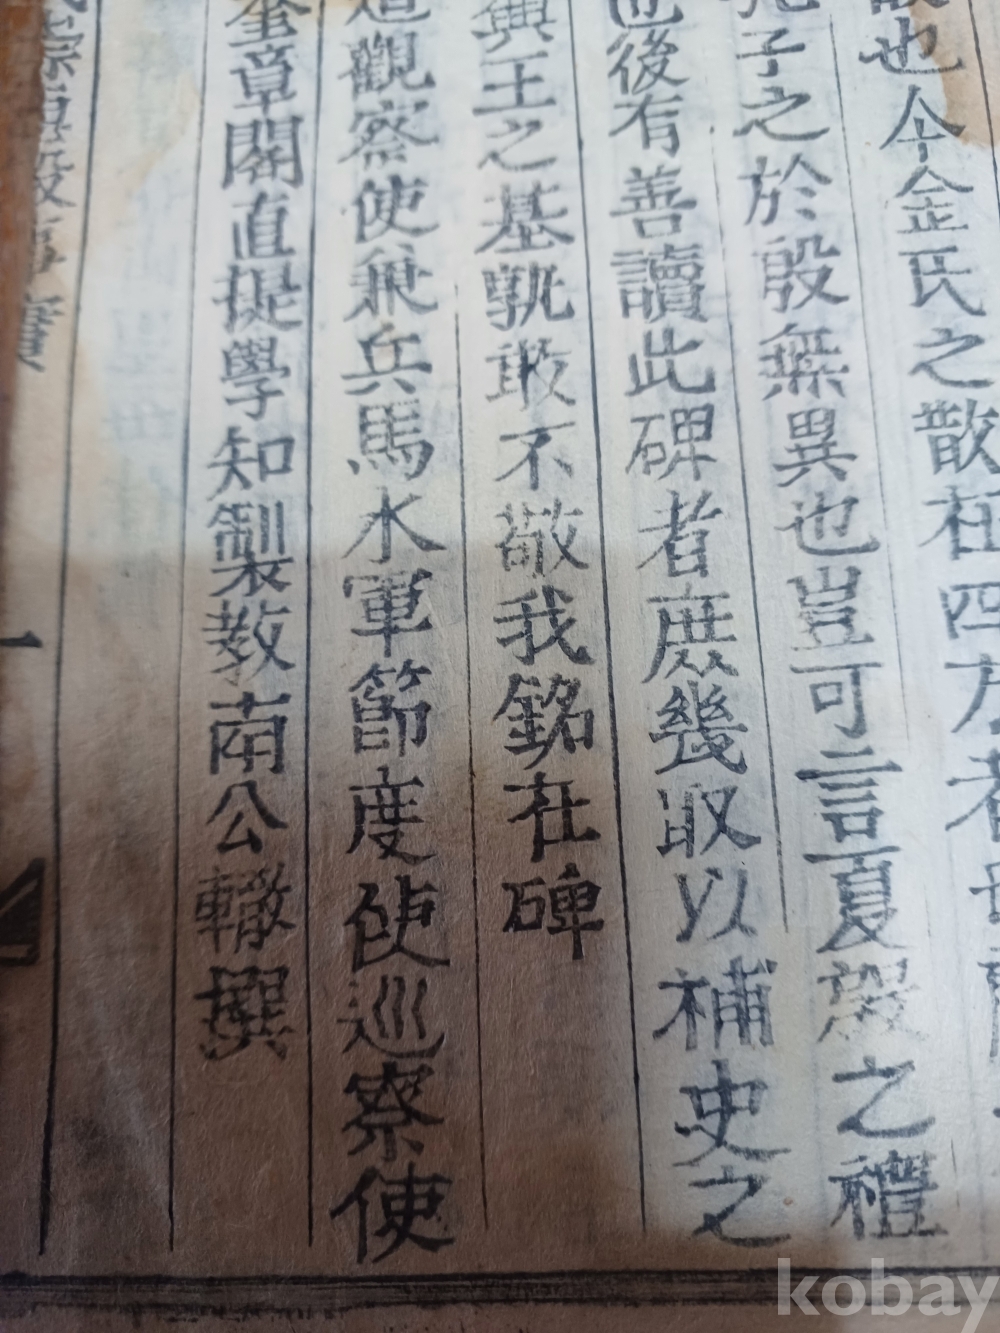 也今金氏之散在四方者
子之於殷無異也豈可言夏殷之禮
也後有善讀此碑者庶幾取以補史之
興王之基孰敢不敬我銘在碑
道觀察使兼兵馬水軍節度使巡察使
奎章閣直提學知製教南公轍撰
一
kobay